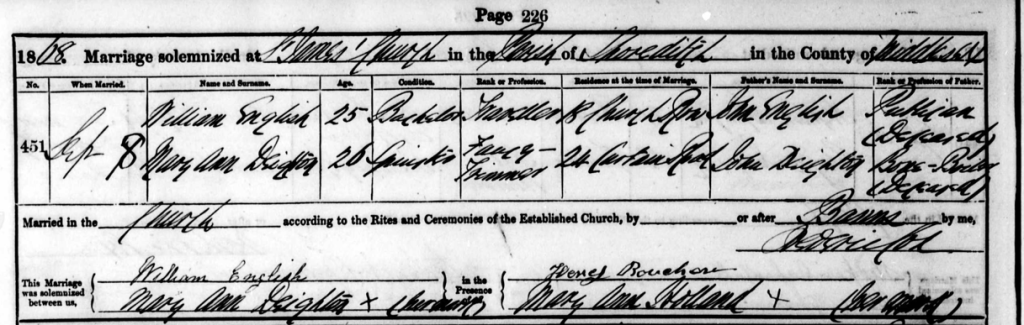 Page 226
1868. Marriage solemnized at St James' Church in the Parish of Shoreditch in the County of Middlesex
No. When Married. Name and Surname. Age. Condition. Rank or Profession. Residence at the time of Marriage. Father's Name and Surname. Rank or Profession of Father.
William English 25 Bachelor Traveller 18 Church Row John English Publican (Deceased)
451 Sep 8 Mary Ann Deighton 26 Spinster Fancy-Trimmer 24 Curtain Road John Deighton (Deceased)
Married in the Church according to the Rites and Ceremonies of the Established Church, by or after Banns by me,
This Marriage was solemnized between us, William English in the Presence of us,
Mary Ann Deighton X (her mark) Mary Ann Holland X (her mark)